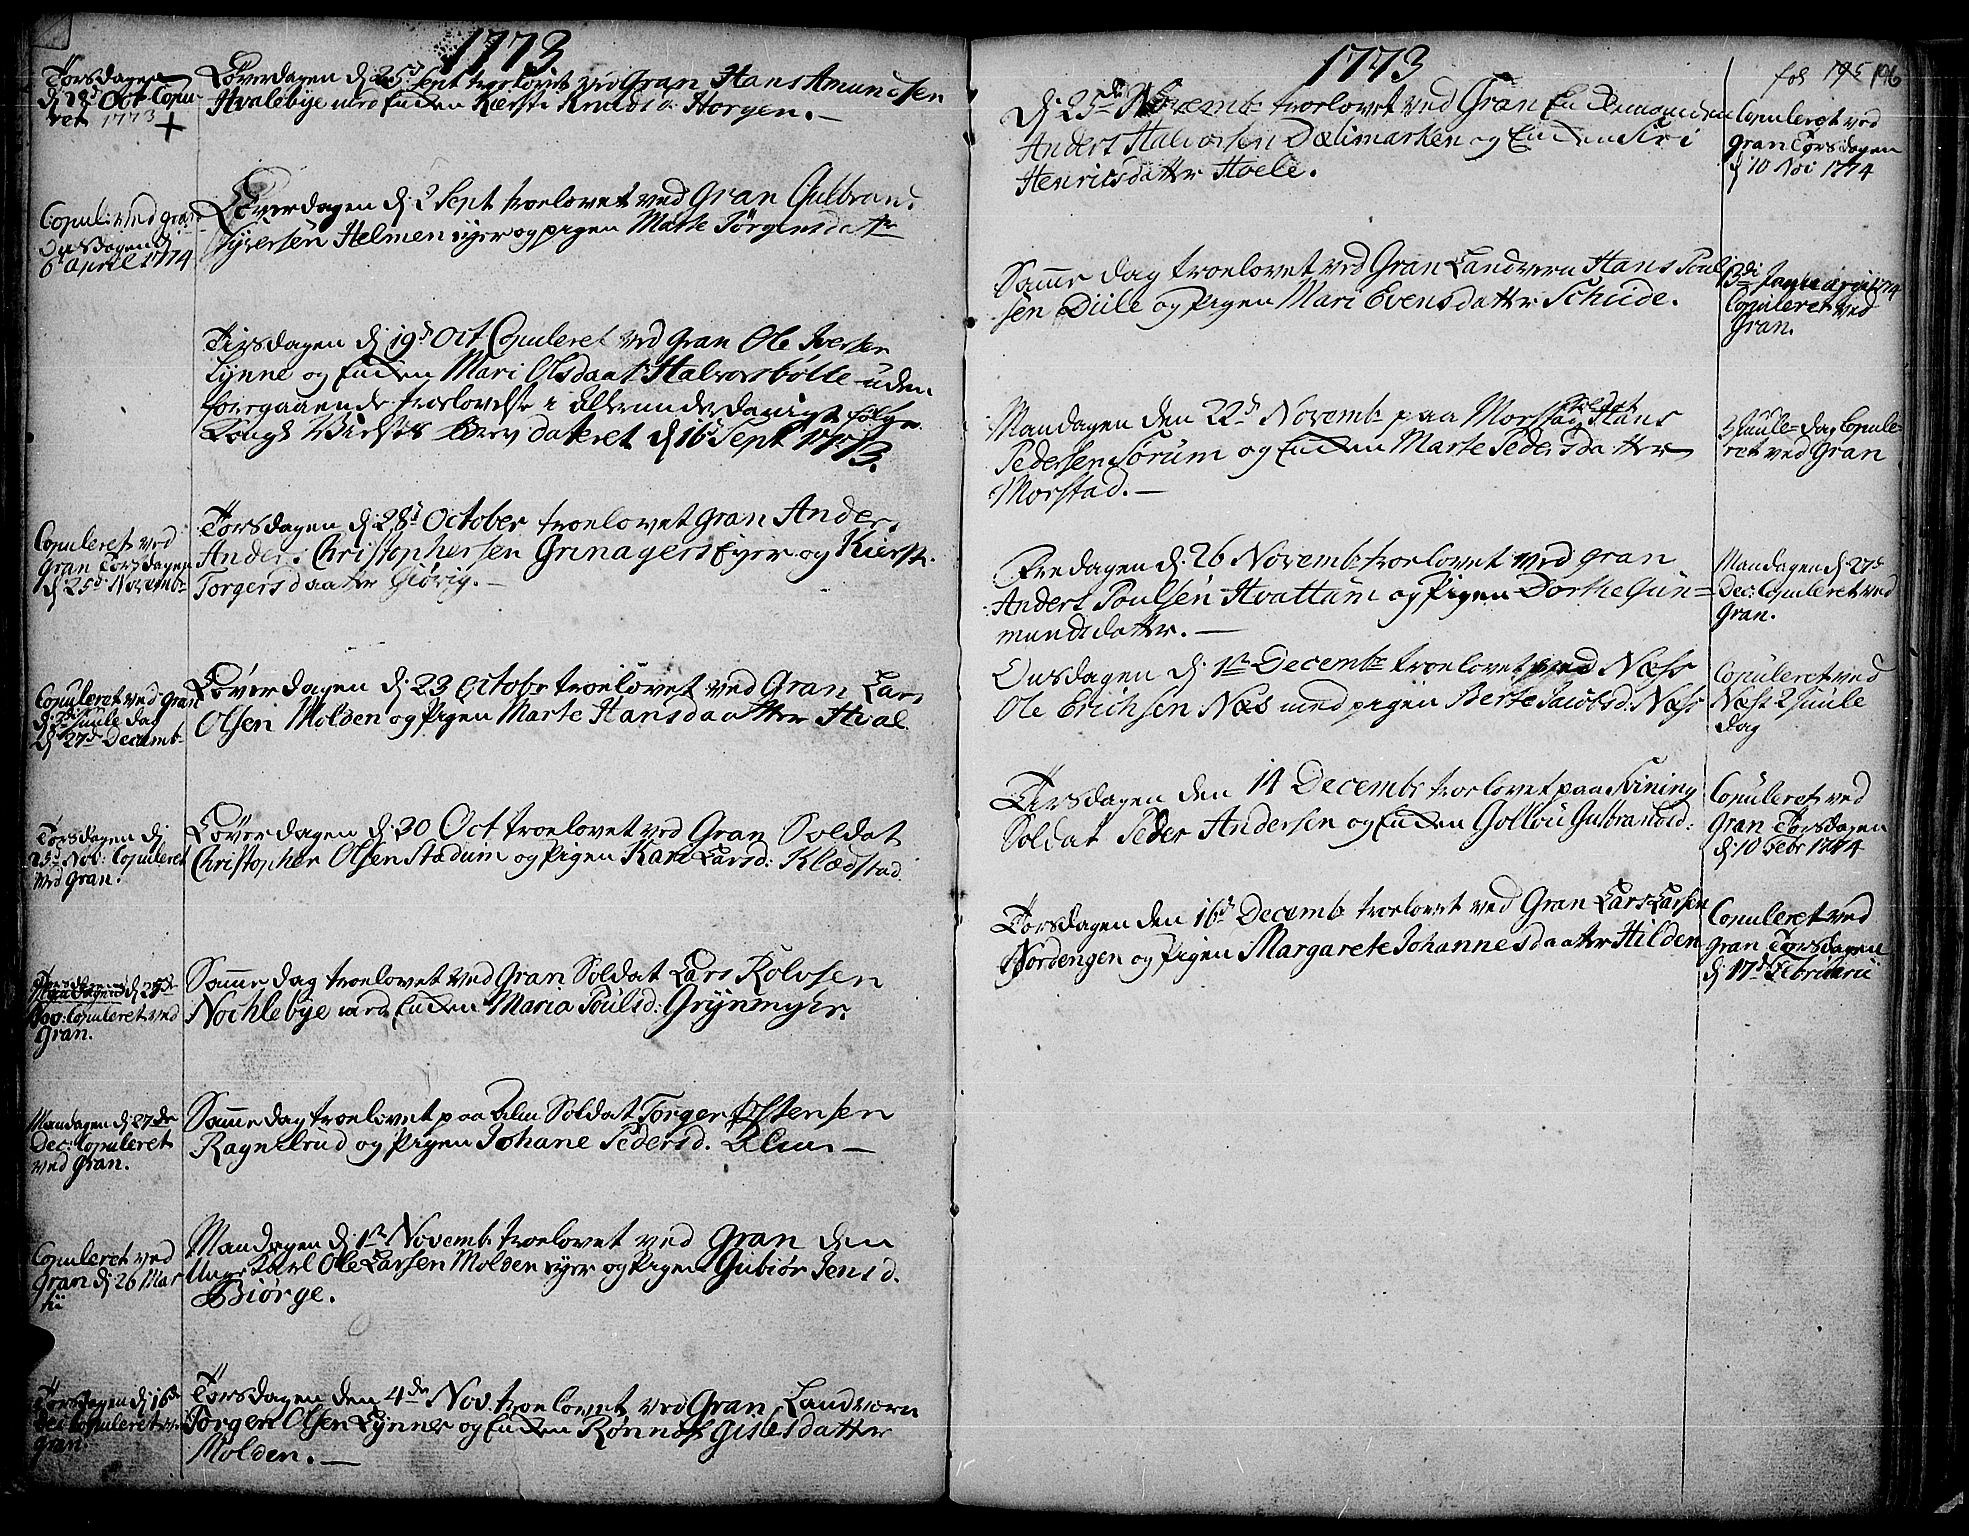 1773
Torsdagen
d: 28d Oct Copu-
ret 1773 +
Löverdagen d: 25d Sept troelovet ved Gran Hans Amundsen
Hvalebye med Enken Kiersti Knudsd: Horgen. —
Copul: ved Gran
Onsdagen d:
6 April 1774
Löverdagen d: 2 Sept troelovet ved Gran Gulbran.
Syversen Helmen eyer og pigen Marte Jörgensdatr
Tirsdagen d: 19d Oct Copuleret ved Gran Ole Iversen
Lynne og Enken Mari Olsdaatr Halvorsbølle uden
foregaaende troelovelse i allerunderdanigst følge
Kongl. Brev dateret d: 16d Sept 1773.
Copuleret ved
Gran Torsdagen
d: 25d Novembr
Torsdagen d: 28d October troelovet Gran Ander.
Anders Christophersen Grinagers Eyer og Kiersti
Torgersdaater Giøvig. —
Copuleret ved Gran
d: 3d Juule dag
d: 27d Decemb
Löverdagen d: 23 Octobr troelovet ved Gran Lars
Olsen Molden og Pigen Marte Hansdaatter Hval
Torsdagen d:
25d Nov: Copuleret
ved Gran.
Löverdagen d: 30 Oct troelovet ved Gran Soldat
Christopher Olsen Stadum og Pigen Kari Larsd: Klædstad.
Torsdagen
Mandagen d: 25d
Nov: Copuleret ved
Gran.
Samme dag troelovet ved Gran Soldat Lars Rolvsen
Nochlebye med Enken Maria Poulsd: Grynmyhr.
Mandagen d: 27de
Dec: Copuleret
ved Gran.
Samme dag troelovet paa Alm Soldat Torger Østensen
Ragnelrud og Pigen Johane Pedersd. Alm. —
Copuleret ved
Gran d: 26 Mar
tii
Mandagen d: 1te Novemb. troelovet ved Gran den
Unge Karl Ole Larsen Molden eyer og Pigen Gubiør Jensd.
Biørge.
Torsdagen d: 16de
Dec Copuleret ved
Gran.
Torsdagen den 4de Nov. troelovet ved Gran Landværn
Torger Olsen Lynner og Enken Rønnof Gislesdatter
Molden. —
1773
fol 195 196
D: 25de Novemb troelovet ved Gran Enkemanden
Anders Halvorsen Dælimarken og Enken Siri
Henricsdatter Hvele.
Copuleret ved
Gran Torsdagen
d: 10 1774
Samme dag troelovet ved Gran Landvern Hans Poul
sen Diile og Pigen Mari Evensdatter Schiide.
13di Januarii 1774
Copuleret ved
Gran.
Mandagen den 22d Novemb paa Morstad Soldat Hans
Pedersen Sørum og Enken Marte Pedersdatter
Morstad. —
3 Juule-dag Copule-
ret ved Gran
Fredagen d: 26 Novemb troelovet ved Gran
Anders Poulsen Hvattum og Pigen Dorthe Gun=
mundsdatter. —
Mandagen d: 27d
Dec: Copuleret ved
Gran.
Onsdagen d: 1te Decembr troelovet ved Næss
Ole Erichsen Næs med pigen Berte Jacobsd: Næss
Copuleret ved
Næss 2 Juule
dag
Tirsdagen den 14 Decembr troelovet paa Svining
Soldat Peder Andersen og Enken Gollou Gulbrandsd:
Copuleret ved
Gran Torsdagen
d: 10 Febr 1774
Torsdagen den 16d Decemb troelovet ved Gran Lars Larsen
Nordengen og Pigen Margarete Johannesdaatter Hilden
Copuleret ved
Gran Torsdagen
d: 17d Februarii